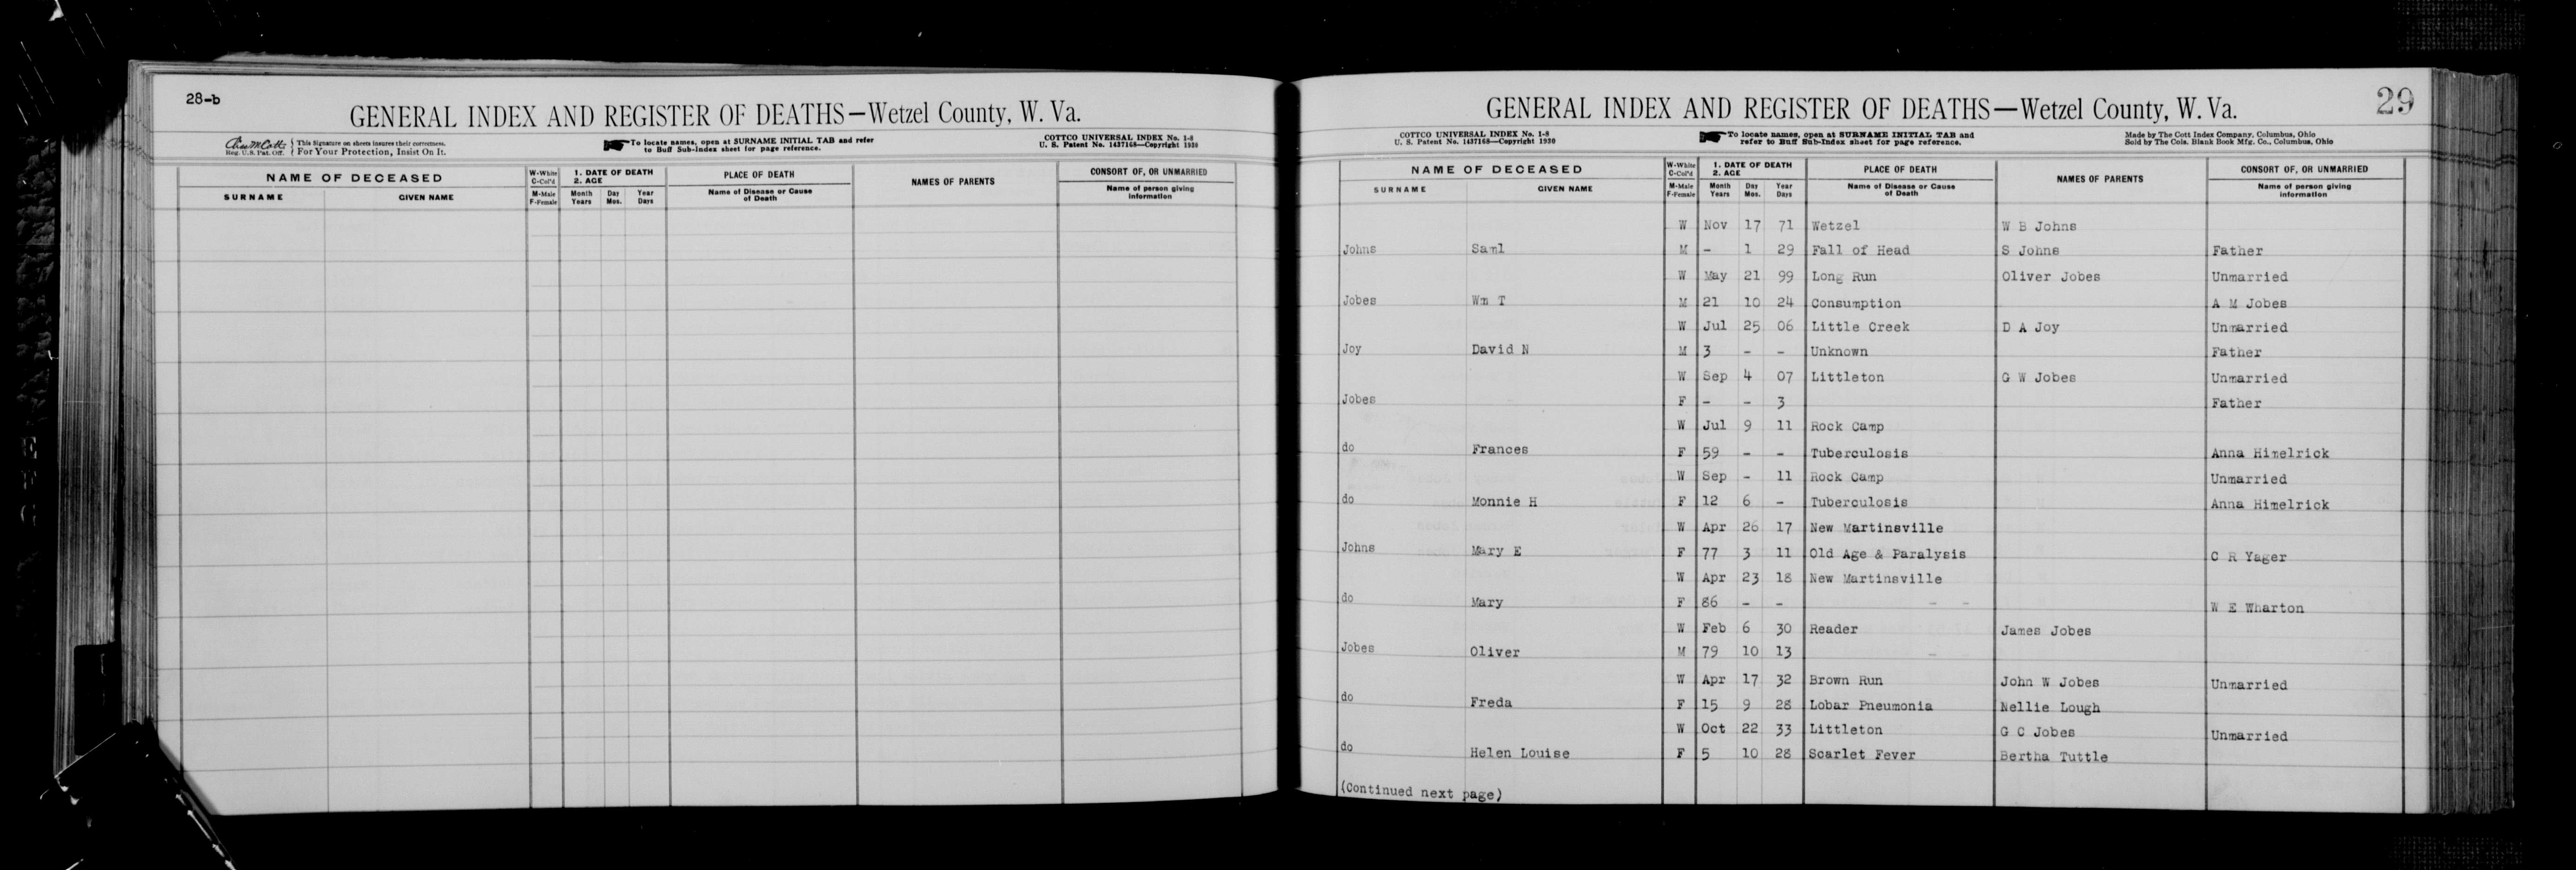 28-b
GENERAL INDEX AND REGISTER OF DEATHS—Wetzel County, W. Va.
Reg. U.S. Pat. Off. { This Signature on sheets insures their correctness. For Your Protection, Insist On It.
To locate names, open at SURNAME INITIAL TAB and refer to Buff Sub-Index sheet for page reference.
COTTCO UNIVERSAL INDEX No. 1-8
U. S. Patent No. 1437168—Copyright 1930
NAME OF DECEASED W-White C-Col'd 1. DATE OF DEATH 2. AGE PLACE OF DEATH NAMES OF PARENTS CONSORT OF, OR UNMARRIED
SURNAME GIVEN NAME M-Male F-Female Month Years Day Mos. Year Days Name of Disease or Cause of Death Name of person giving information
GENERAL INDEX AND REGISTER OF DEATHS—Wetzel County, W. Va.
29
COTTCO UNIVERSAL INDEX No. 1-8
U. S. Patent No. 1437168—Copyright 1930
To locate names, open at SURNAME INITIAL TAB and refer to Buff Sub-Index sheet for page reference.
Made by The Cott Index Company, Columbus, Ohio
Sold by The Cols. Blank Book Mfg. Co., Columbus, Ohio
NAME OF DECEASED W-White C-Col'd 1. DATE OF DEATH 2. AGE PLACE OF DEATH NAMES OF PARENTS CONSORT OF, OR UNMARRIED
SURNAME GIVEN NAME M-Male F-Female Month Years Day Mos. Year Days Name of Disease or Cause of Death Name of person giving information
W Nov 17 71 Wetzel W B Johns
Johns Saml M - 1 29 Fall of Head S Johns Father
W May 21 99 Long Run Oliver Jobes Unmarried
Jobes Wm T M 21 10 24 Consumption A M Jobes
W Jul 25 06 Little Creek D A Joy Unmarried
Joy David N M 3 - - Unknown Father
W Sep 4 07 Littleton G W Jobes Unmarried
Jobes F - - 3 Father
W Jul 9 11 Rock Camp
do Frances F 59 - - Tuberculosis Anna Himelrick
W Sep - 11 Rock Camp Unmarried
do Monnie H F 12 6 - Tuberculosis Anna Himelrick
W Apr 26 17 New Martinsville
Johns Mary E F 77 3 11 Old Age & Paralysis C R Yager
W Apr 23 18 New Martinsville
do Mary F 86 - - - - W E Wharton
W Feb 6 30 Reader James Jobes
Jobes Oliver M 79 10 13 -
W Apr 17 32 Brown Run John W Jobes Unmarried
do Freda F 15 9 28 Lobar Pneumonia Nellie Lough
W Oct 22 33 Littleton G C Jobes Unmarried
do Helen Louise F 5 10 28 Scarlet Fever Bertha Tuttle
(Continued next page)